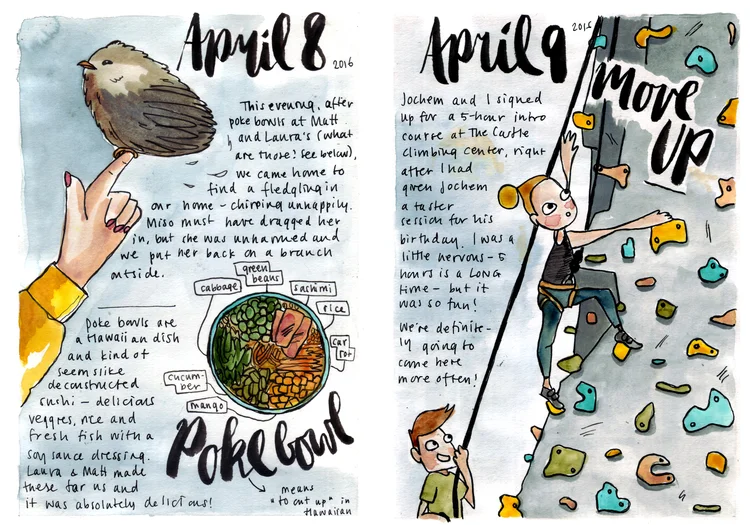 April 8
2016
This evening, after
poke bowls at Matt
and Laura's (what
are those? See below),
we came home to
find a fledgling in
our home - chirping unhappily.
Miso must have dragged her
in, but she was unharmed and
we put her back on a branch
outside.
Poke bowls are
a Hawaiian dish
and kind of
seems like
deconstructed
sushi - delicious
veggies, rice and
fresh fish with a
soy sauce dressing.
Laura & Matt made
these for us and
it was absolutely delicious!
green
beans
cabbage
sashimi
rice
car
rot
cucum-
ber
mango
Poke bowl
means
"to cut up" in
Hawaiian
April 9
2016
move
UP
Jochem and I signed
up for a 5-hour intro
course at The Castle
Climbing Center, right
after I had
given Jochem
a taster
session for his
birthday. I was a
little nervous - 5
hours is a LONG
time - but it
was so fun!
We're definite-
ly going to
come here
more often!